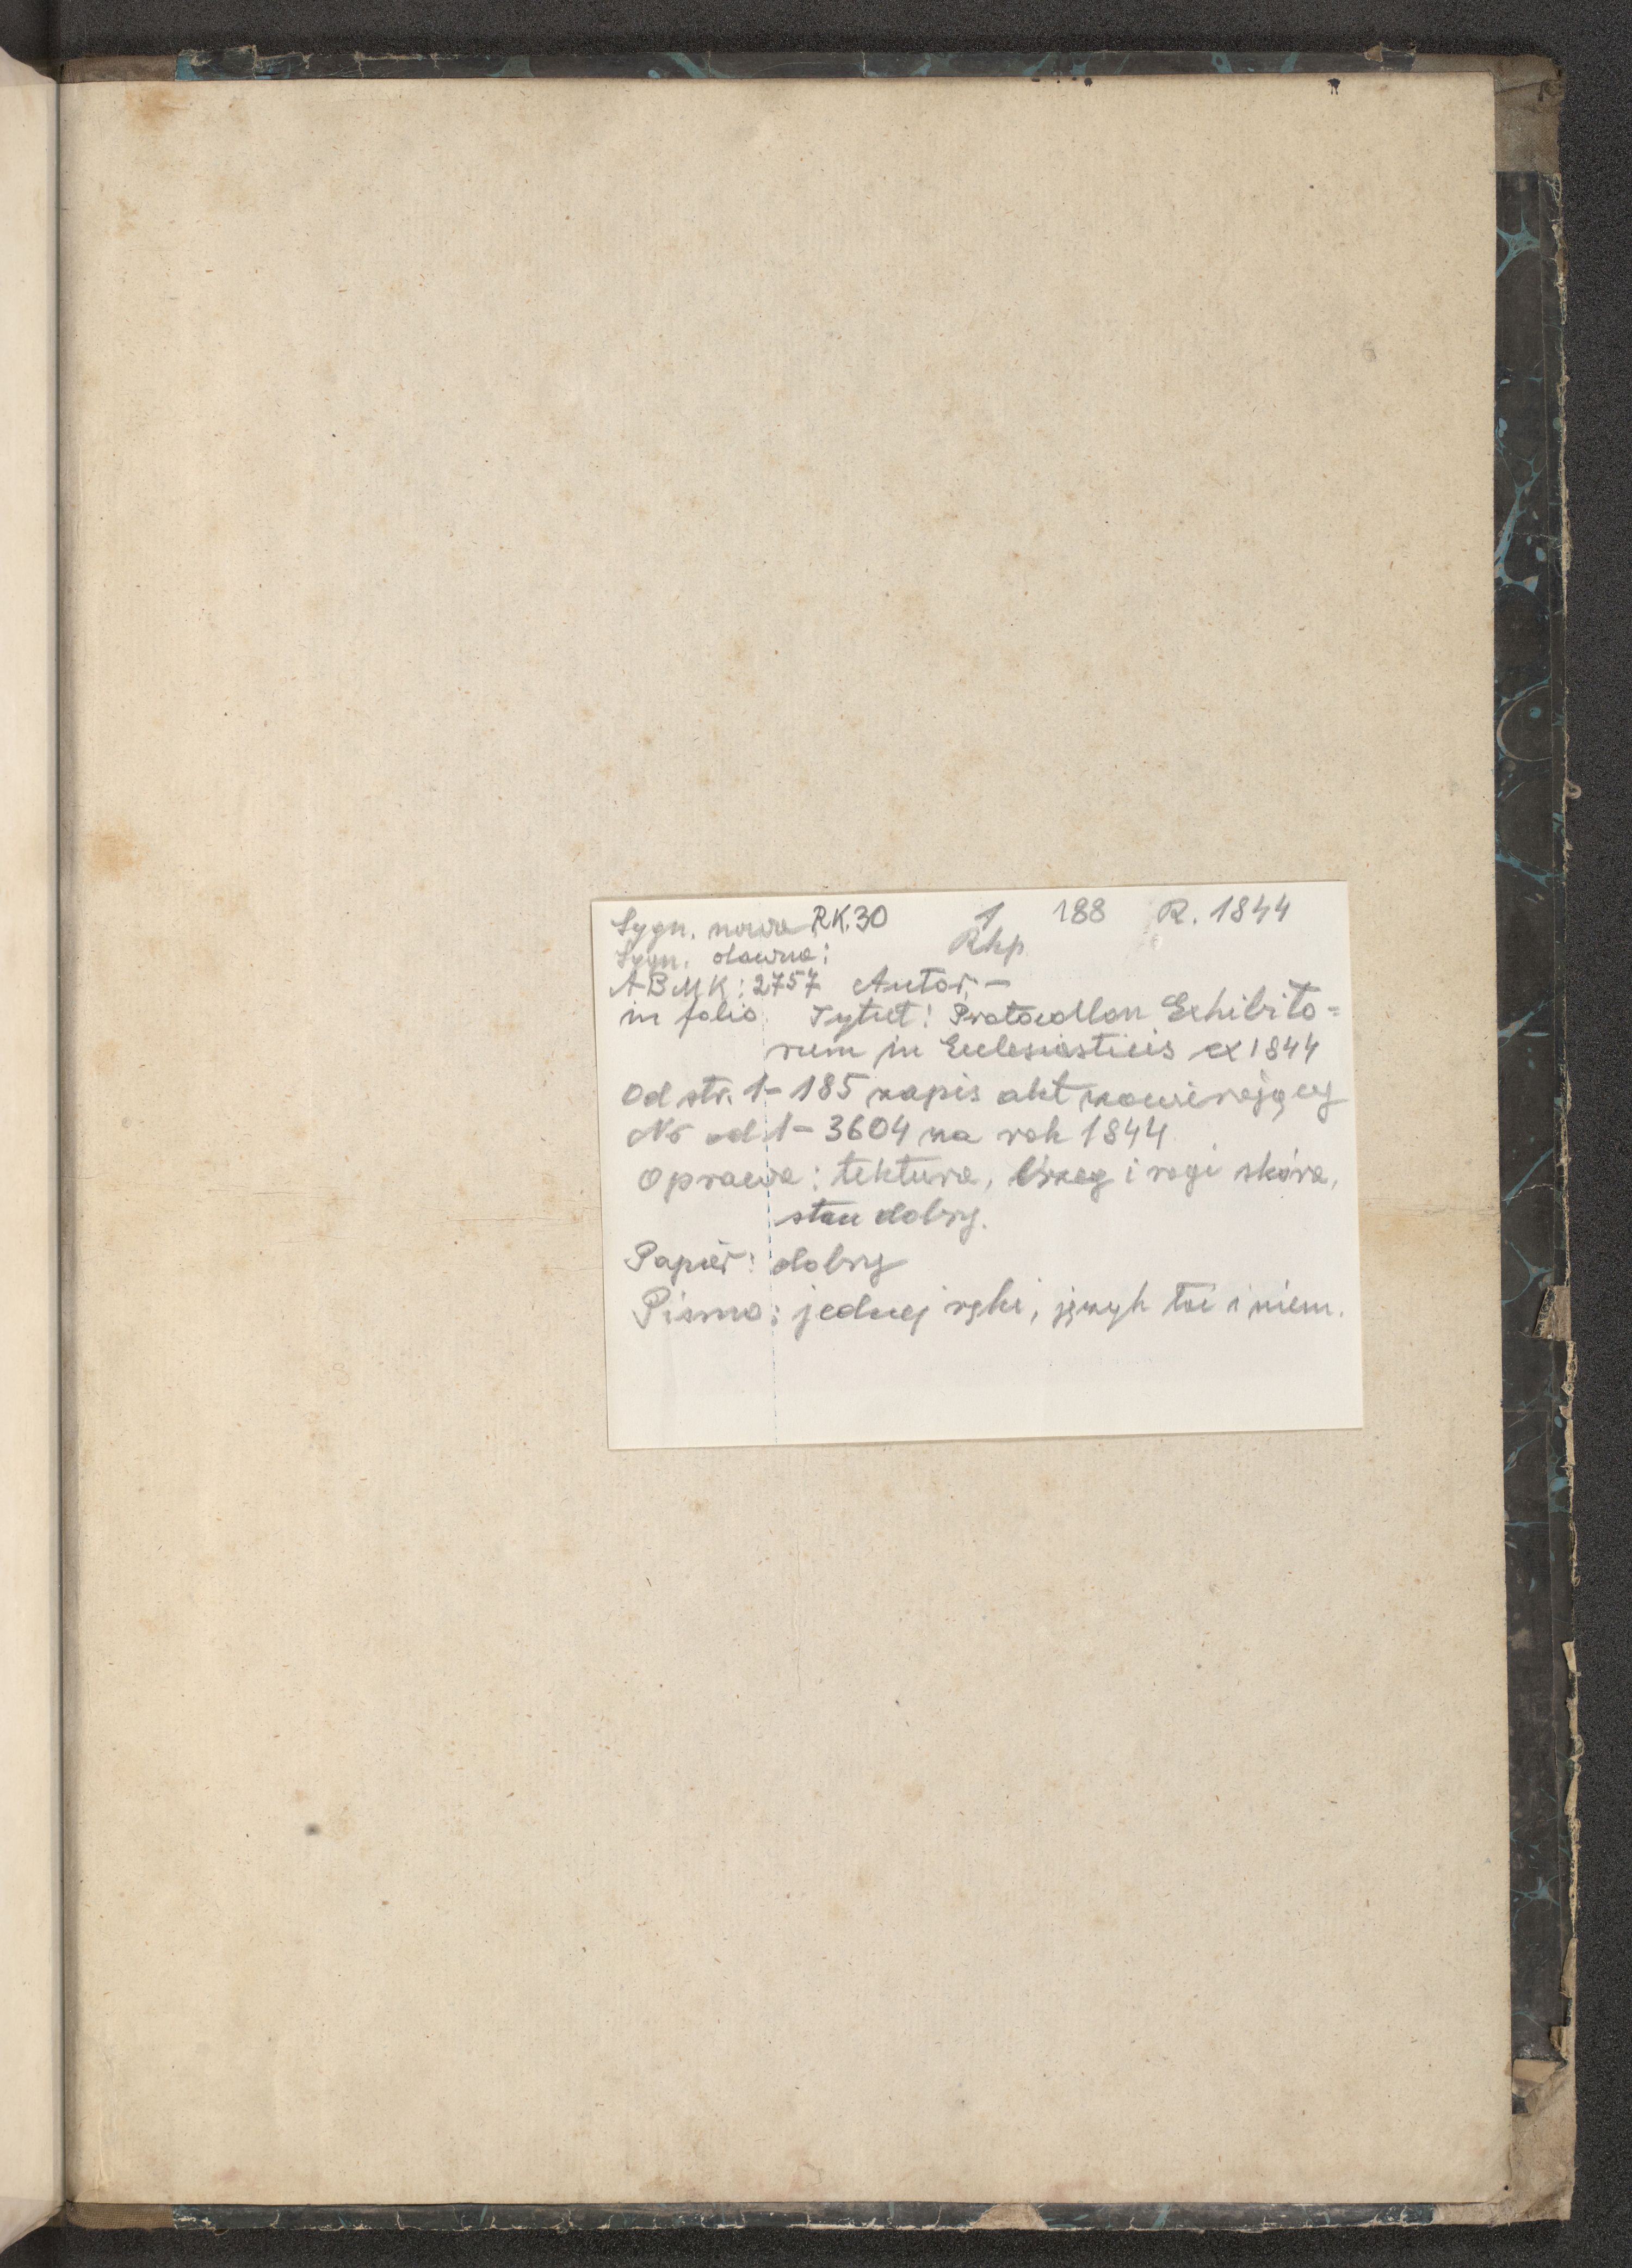 Sygn. nowa RK.30 1 188 R. 1844
Sygn. dawna: Rkp
ABMK: 2757 Autor: -
in folio Tytuł: Protocollon Exhibito=
rum in Ecclesiasticis ex 1844
Od str. 1-185 napis akt zawierający
No od 1-3604 na rok 1844
Oprawa: tektura, brzeg i rogi skóra,
stan dobry.
Papier: dobry
Pismo: jednej ręki, język łac i niem.